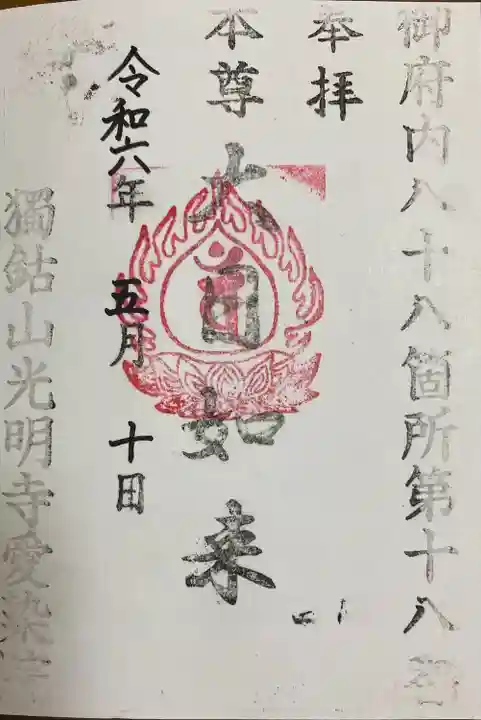 御府内八十八箇所第十八
奉拝
本尊
大日如来
令和六年 五月 十日
獨鈷山光明寺愛染